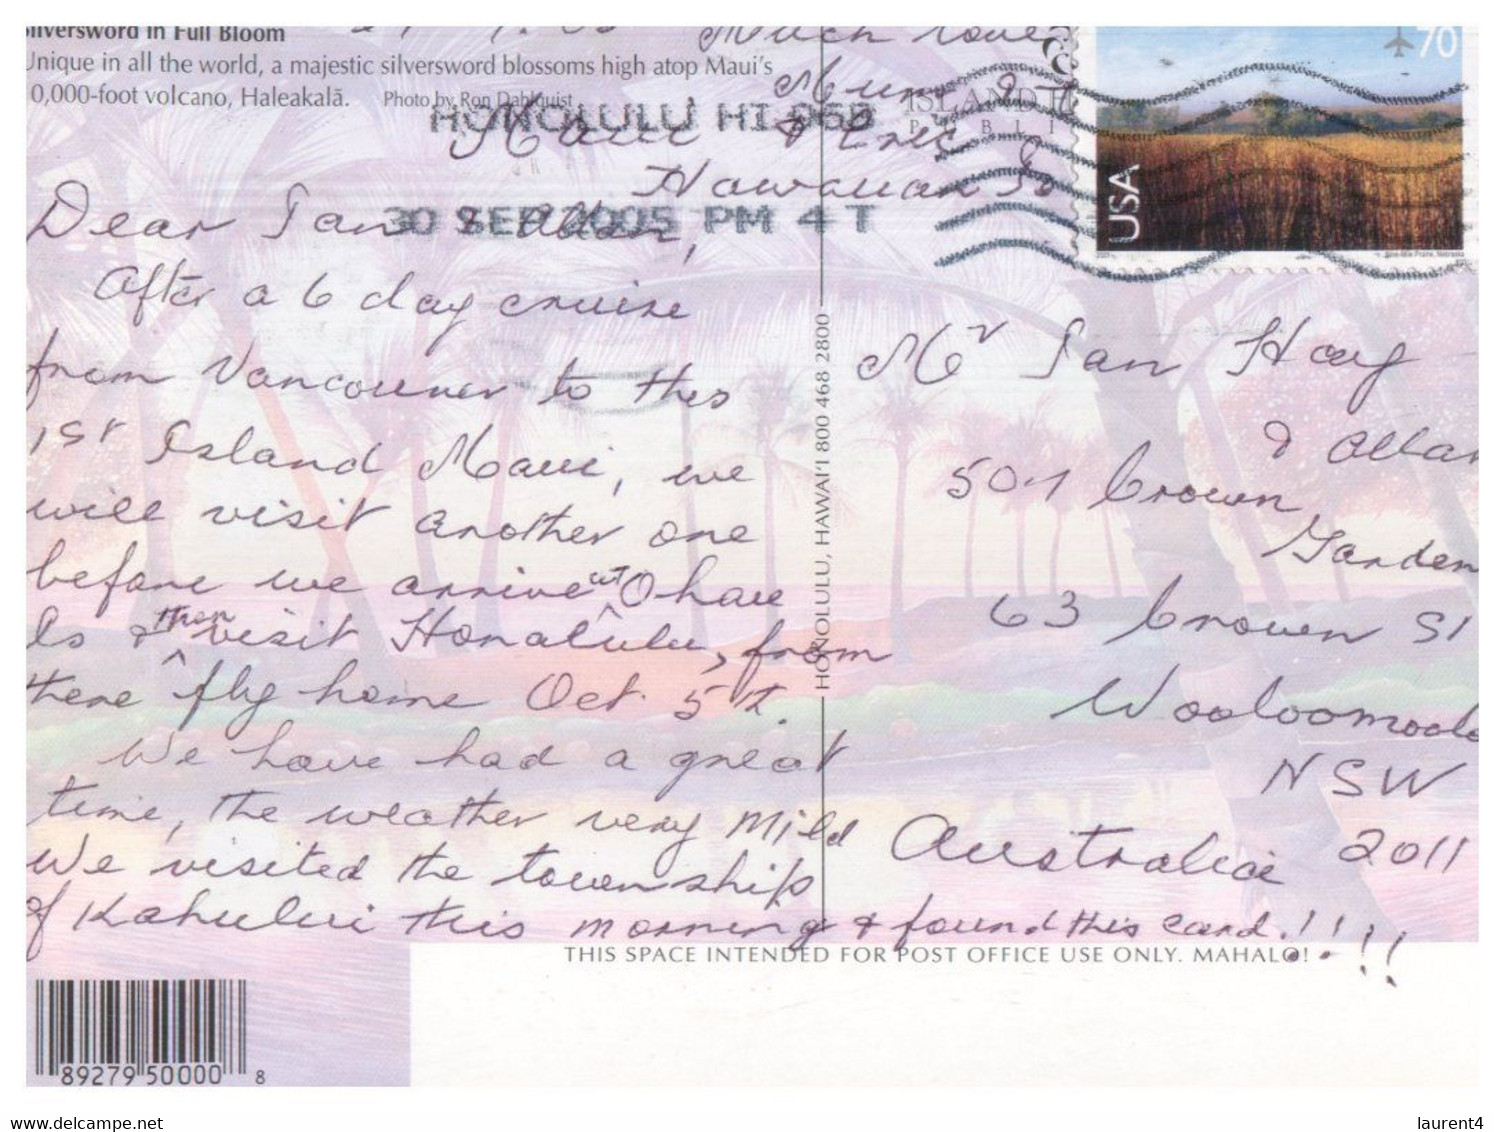 Silversword in Full Bloom
Unique in all the world, a majestic silversword blossoms high atop Maui's
10,000-foot volcano, Haleakalā. Photo by Ron Dahlquist
HONOLULU HI 968
30 SEP 2005 PM 4 T
Much love
Mum &
Eric
Maui
Hawaiian Is
Dear Ian & Allan,
After a 6 day cruise
from Vancouver to this
1st Island Maui, we
will visit another one
before we arrive at Ohau
Is & then visit Honolulu, from
there fly home Oct. 5th.
We have had a great
time, the weather very mild
We visited the township
of Kahului this morning & found this card.!!!!!
ISLAND
HONOLULU, HAWAI'I 800 468 2800
70
USA
Nine-Mile Prairie, Nebraska
Mr Ian Hay
& Allan
501 Crown
Garden
63 Crown St
Wooloomooloo
NSW
Australia 2011
THIS SPACE INTENDED FOR POST OFFICE USE ONLY. MAHALO!
89279 50000 8
laurent4